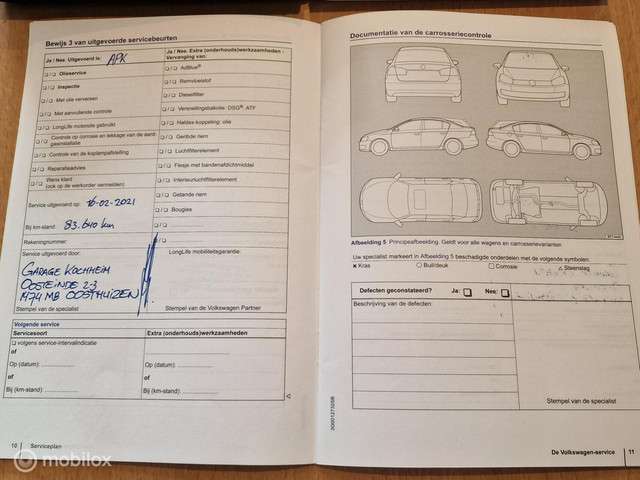 Bewijs 3 van uitgevoerde servicebeurten
Ja / Nee Uitgevoerd is: APK
Ja / Nee Extra (onderhouds)werkzaamheden -
Vervanging van:
❑ / ❑ Olieservice
❑ / ❑ Inspectie
❑ / ❑ Met olie verversen
❑ / ❑ Met aanvullende controle
❑ / ❑ LongLife motorolie gebruikt
❑ / ❑ Controle op corrosie en lekkage van de aard-
gasinstallatie
❑ / ❑ Controle van de koplampafstelling
❑ / ❑ Reparatieadvies
❑ / ❑ Wens klant
(ook op de werkorder vermelden)
❑ / ❑ AdBlue®
❑ / ❑ Remvloeistof
❑ / ❑ Dieselfilter
❑ / ❑ Versnellingsbakolie: DSG® ATF
❑ / ❑ Haldex-koppeling: olie
❑ / ❑ Geribde riem
❑ / ❑ Luchtfilterelement
❑ / ❑ Flesje met bandenafdichtmiddel
❑ / ❑ Interieurluchtfilterelement
❑ / ❑ Getande riem
❑ / ❑ Bougies
Service uitgevoerd op: 16-02-2021
Bij km-stand: 83.640 km
Rekeningnummer:
Service uitgevoerd door:
GARAGE KOCHHEIM
OOSTEINDE 23
1474 MB OOSTHUIZEN
Stempel van de specialist
LongLife mobiliteitsgarantie:
Stempel van de Volkswagen Partner
Volgende service
Servicesoort
Extra (onderhouds)werkzaamheden
❑ volgens service-intervalindicatie
of
Op (datum):
of
Bij (km-stand):
Op (datum):
of
Bij (km-stand):
10 Serviceplan
Documentatie van de carrosseriecontrole
Afbeelding 5 Principeafbeelding. Geldt voor alle wagens en carrosserievarianten
Uw specialist markeert in Afbeelding 5 beschadigde onderdelen met de volgende symbolen:
× Kras
○ Buil/deuk
□ Corrosie
△ Steenslag
Defecten geconstateerd?
Ja: ❑
Nee: ❑
Beschrijving van de defecten:
Stempel van de specialist
De Volkswagen-service 11
mobilox